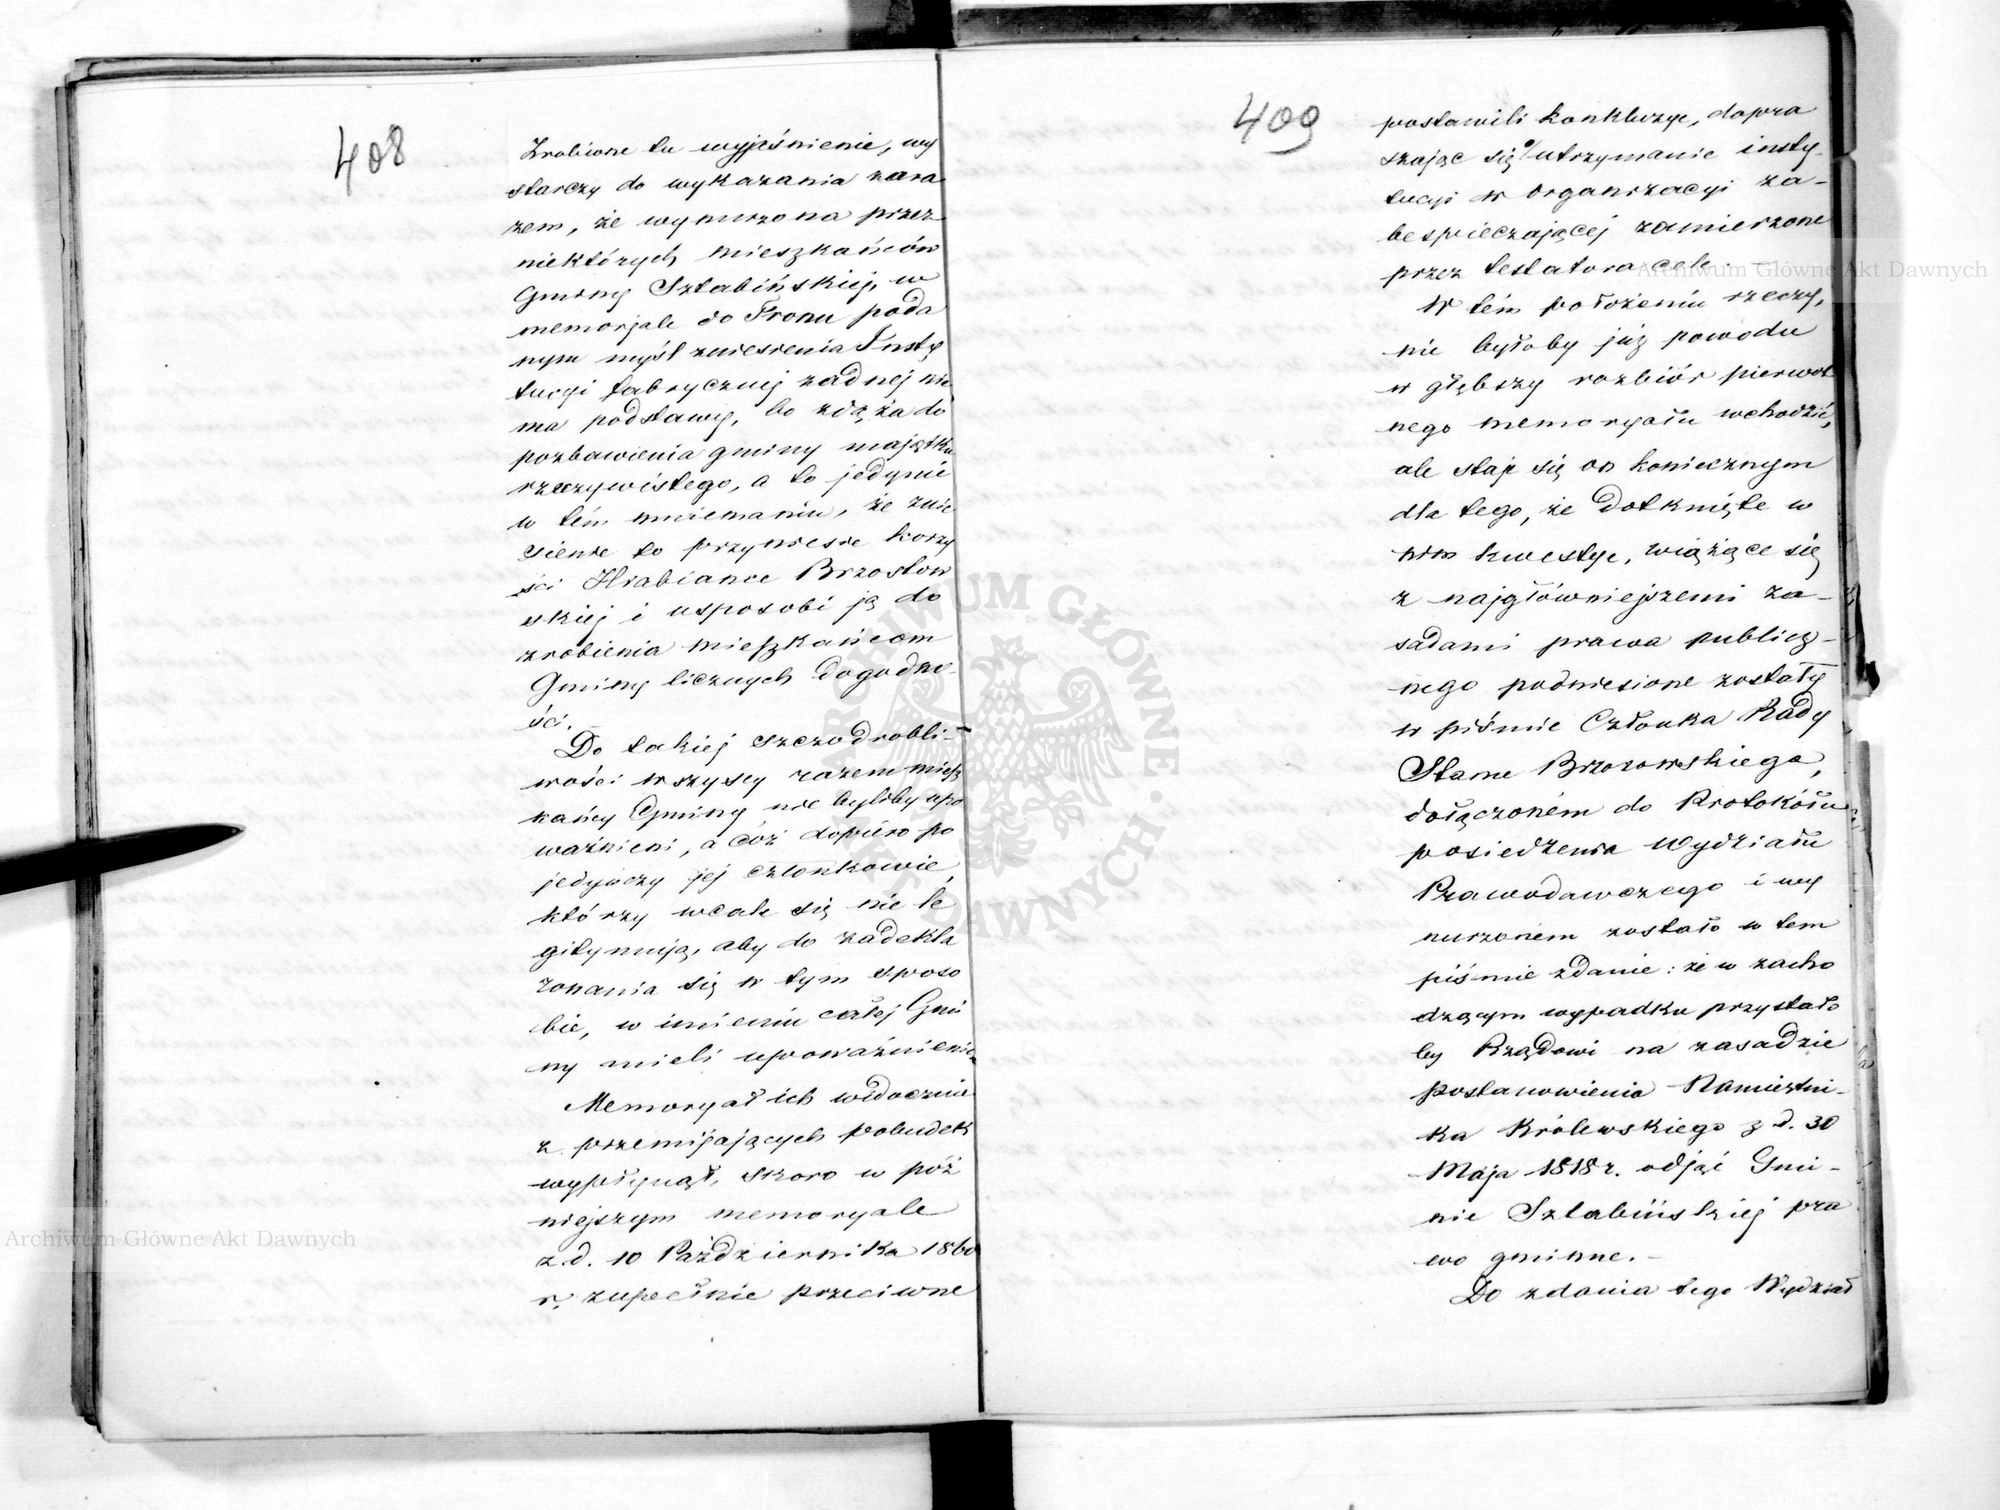 408
Zrobione tu wyjaśnienie, wy
starczy do wykazania zara
zem, że wynurzona przez
niektórych mieszkańców
Gminy Sztabińskiej, w
memorjale do Tronu poda
nym myśl zniesienia Insty
tucyi fabrycznej żadnej nie
ma podstawy, bo zdąża do
pozbawienia gminy majątku
rzeczywistego, a to jedynie
w tém mniemaniu, że znie
sienie to przyniesie korzy
ści Hrabiance Brzostow
skiej i usposobi ją do
zrobienia mieszkańcom
Gminy licznych dogodno-
ści.
Do takiej szczodrobli-
wości wszyscy razem miesz
kańcy Gminy nie byliby upo
ważnieni, a cóż dopiéro po
jedyńczy jej członkowie,
którzy wcale się nie le
gitymują, aby do zadekla
rowania się w tym sposo
bie, w imieniu całej Gmi
ny mieli upoważnienie
Memoryał ich widocznie
z przemijających pobudek
wypłynął, skoro w póź
niejszym memoryale
z d. 10 Października 1860
r. zupełnie przeciwne
409
postawili konkluzye, dopra
szając się o utrzymanie insty-
tucyi w organizacyi za-
bespieczającej zamierzone
przez testatora cele. —
W tém położeniu rzeczy,
nie byłoby już powodu
w głębszy rozbiór pierwot
nego memoryału wchodzić,
ale staje się on koniecznym
dla tego, że dotknięte w
nim kwestye, wiążące się
z najgłówniejszemi za-
sadami prawa publicz-
nego podniesione zostały
w piśmie Członka Rady
Stanu Brzozowskiego,
dołączoném do Protokółu
posiedzenia Wydziału
Prawodawczego i wy
nurzonem zostało w tem
piśmie zdanie: że w zacho
dzącym wypadku przystało
by Rządowi na zasadzie
postanowienia Namiestni-
ka Królewskiego z d. 30
Maja 1818 r. odjąć Gmi-
nie Sztabińskiej pra
wo gminne. —
Do zdania tego Wydział
Archiwum Główne Akt Dawnych
Archiwum Główne Akt Dawnych
ARCHIWUM GŁÓWNE AKT DAWNYCH